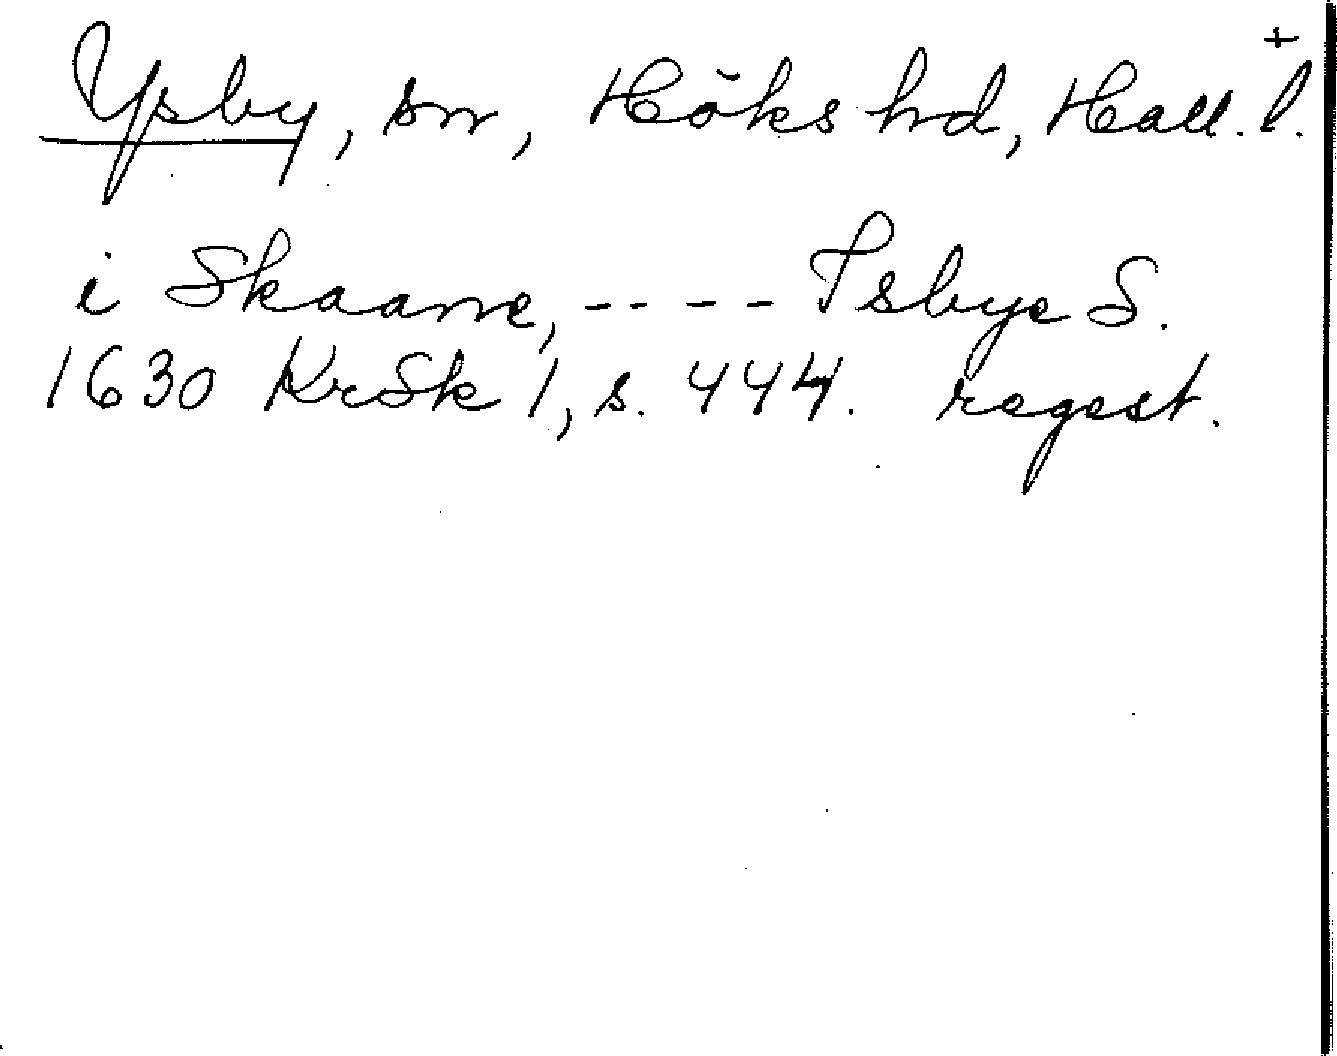 +
Ysby, sn, Höks hd, Hall. l.
i Skaane, ---- Isbye S.
1630 KrSk 1, s. 444. regest.